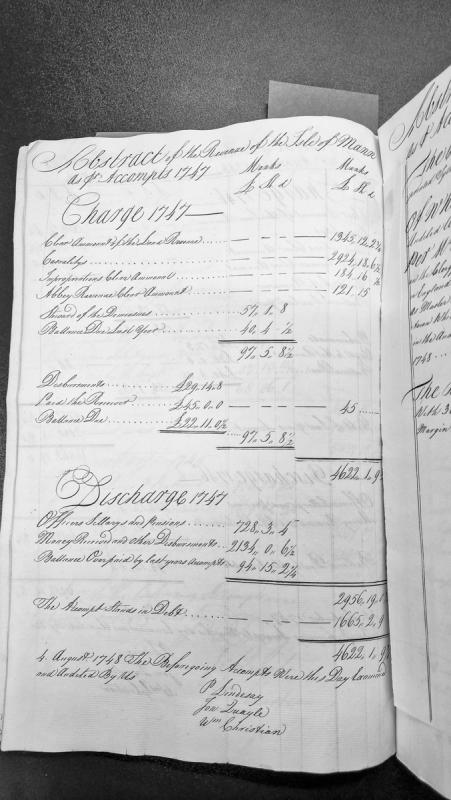 Abstract of the Revenue of the Isle of Mann
as pr. Accompts 1747
Manks Manks
£ Sh d £ Sh d
Charge 1747
Clear Ammount of the Land Revenue ...... — — — — 1345,, 12,, 2¼
Casualtys ...... — — — — 2924,, 18,, 6½
Impropriations Clear Ammount ...... — — — — 184,, 16
Abbey Revenue Clear Ammount ...... — — — — 121,, 15
Steward of the Demesnes ...... 57,, 1,, 8
Ballance Due Last Year ...... 40,, 4,, ½
97,, 5,, 8½
Disbursments ...... £29,, 14,, 8
Paid the Receiver ...... £45,, 0,, 0 — — — — 45 ......
Ballance Due ...... £22,, 11,, 0½
97,, 5,, 8½
4622,, 1,, 9
Discharge 1747
Officers Sallarys and Pensions ...... 728,, 3,, 4
Money Received and other Disbursments ... 2134,, 0,, 6½
Ballance Overpaid by last years Accompts 94,, 15,, 2¼
2956,, 19,, 0
The Accompt Stands in Debt ...... 1665,, 2,, 9
4622,, 1,, 9
4. August 1748 The Beforegoing Accompts Were this Day Examined
and Audited By Us
P Lindesay
Jon Quayle
Wm Christian
as pr
1748
The
With
Margin